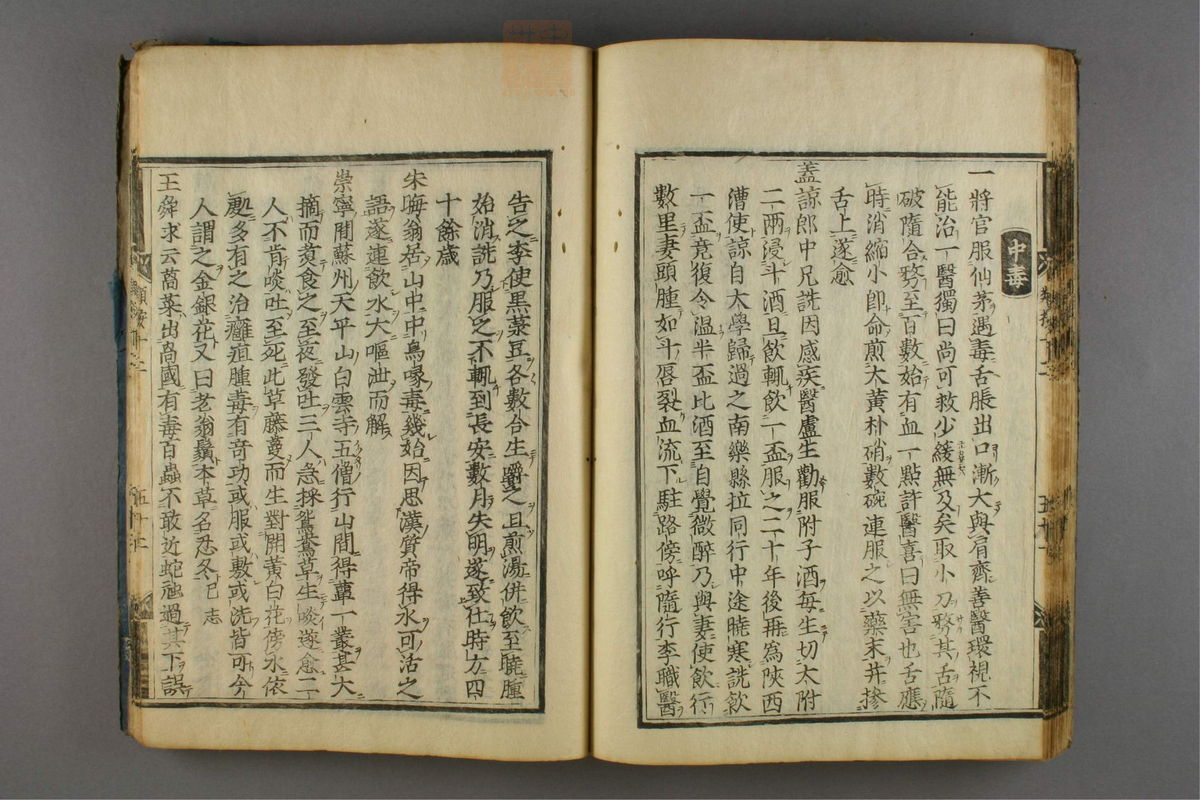 中毒
一將官服仙茅遇毒舌脹出口漸大與肩齊善醫環視不
能治一醫獨曰尚可救少緩無及矣取小刀剺其舌隨
破隨合剺至百數始有血一點許醫喜曰無害也舌應
時消縮小即命煎大黃朴硝數碗連服之以藥末并摻
舌上遂愈
蓋諒郎中兄詵因感疾醫盧生勸服附子酒每生切大附
二兩浸斗酒旦飲輒飲一盃服之二十年後再為陝西
漕使諒自太學歸過之南樂縣拉同行中途曉寒詵飲
一盃竟復令温半盃比酒至自覺微醉乃與妻使飲行
數里妻頭腫如斗唇裂血流下駐路傍呼隨行李職醫
告之李使黑菉豆各數合生嚼之且煎湯併飲至曉腫
始消詵乃服之不輟到長安數月失明遂致仕時方四
十餘歲
朱晦翁居山中中烏喙毒幾始因思漢質帝得水可活之
語遂連飲水大嘔泄而解
崇寧間蘇州天平山白雲寺五僧行山間得蕈一叢甚大
摘而煑食之至夜發吐三人急採鴛鴦草生啖遂愈二
人不肯啖吐至死此草藤蔓而生對開黃白花傍水依
處多有之治癰疽腫毒有奇功或服或敷或洗皆可今
人謂之金銀花又曰老翁鬚本草名忍冬 己志
王舜求云萵菜出萵國有毒百蟲不敢近蛇虺過其下誤